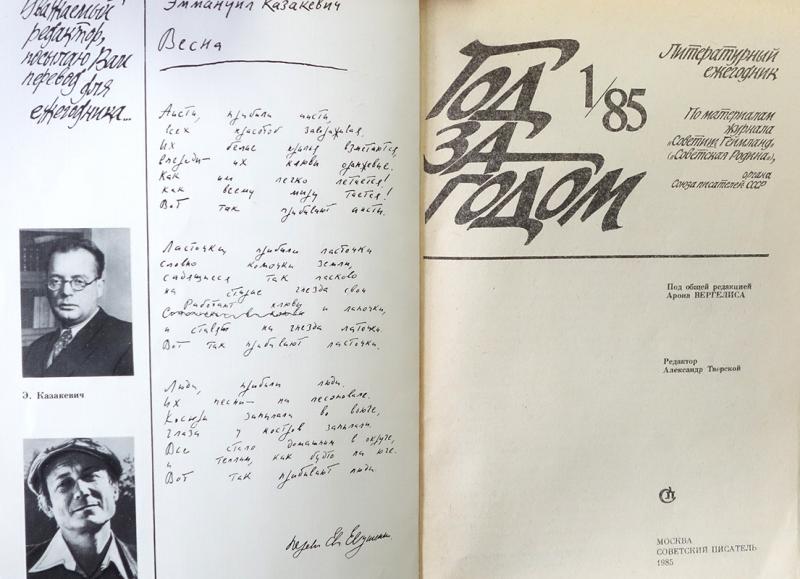 Уважаемый
редактор,
посылаю Вам
перевод для
ежегодника...
Эммануил Казакевич
Весна
Аисты, прибыли аисты,
всех красотой завораживая.
Их белые крылья взметаются,
впереди – их клювы оранжевые.
Как им легко летается!
Как всему миру тается!
Вот так прибывают аисты.
Ласточки, прибыли ласточки
словно комочки земли,
садящиеся так ласково
на старые гнёзда свои
Работают клювы и лапочки,
и ставят на гнёзда латочки.
Вот так прибывают ласточки.
Люди, прибыли люди.
Их песни – на лесоповале.
Костры запылали во вьюге,
глаза у костров запылали.
Все стало домашним в округе,
и теплым, как будто на юге.
Вот так прибывают люди
Перевел Ев. Евтушенко
Э. Казакевич
ГОД
ЗА
ГОДОМ
1/85
Литературный
ежегодник
По материалам
журнала
«Советиш Геймланд»
(«Советская Родина»),
органа
Союза писателей СССР
Под общей редакцией
Арона ВЕРГЕЛИСА
Редактор
Александр Тверской
МОСКВА
СОВЕТСКИЙ ПИСАТЕЛЬ
1985